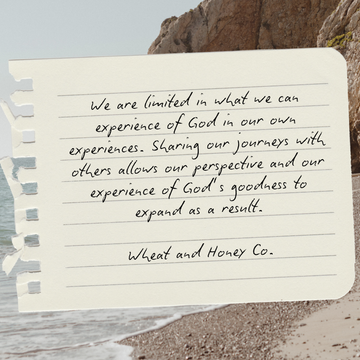 We are limited in what we can
experience of God in our own
experiences. Sharing our journeys with
others allows our perspective and our
experience of God's goodness to
expand as a result.
Wheat and Honey Co.